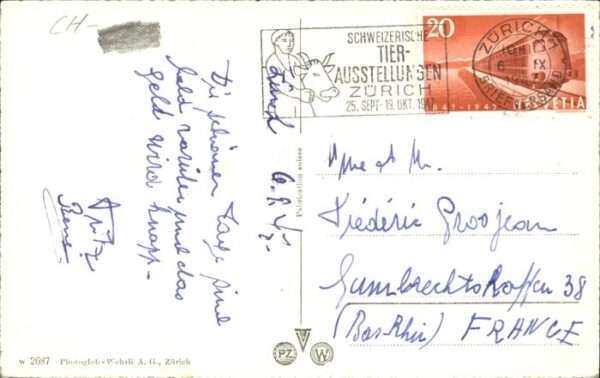 CH-
Zürich 6.9.47
Die schönen Tage sind
bald vorüber und das
Geld wird knapp -
Fritz
SCHWEIZERISCHE
TIER-
AUSSTELLUNGEN
ZÜRICH
25. SEPT.-19. OKT. 1947
20
ZÜRICH 1
6. IX
BRIEFVERSAND
1847-1947 HELVETIA
Mme et M.
Frédéric Groojean
Gumbrechtshoffen 38
(Bas-Rhin) FRANCE
Fabrication suisse
PZ W
W 2087 Photoglob-Wehrli A. G., Zürich